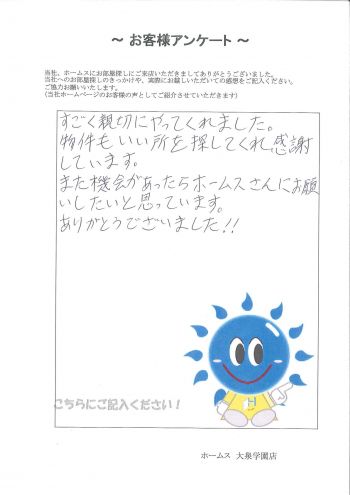 ～ お客様アンケート ～
当社、ホームスにお部屋探しにご来店いただきましてありがとうございました。
当社へのお部屋探しのきっかけや、実際にお越しいただいての感想をご記入ください。
ご協力お願いいたします。
(当社ホームページのお客様の声としてご紹介させていただきます)
すごく親切にやってくれました。
物件もいい所を探してくれ感謝
しています。
また機会があったらホームスさんにお願
いしたいと思っています。
ありがとうございました!!
こちらにご記入ください！
ホームス 大泉学園店